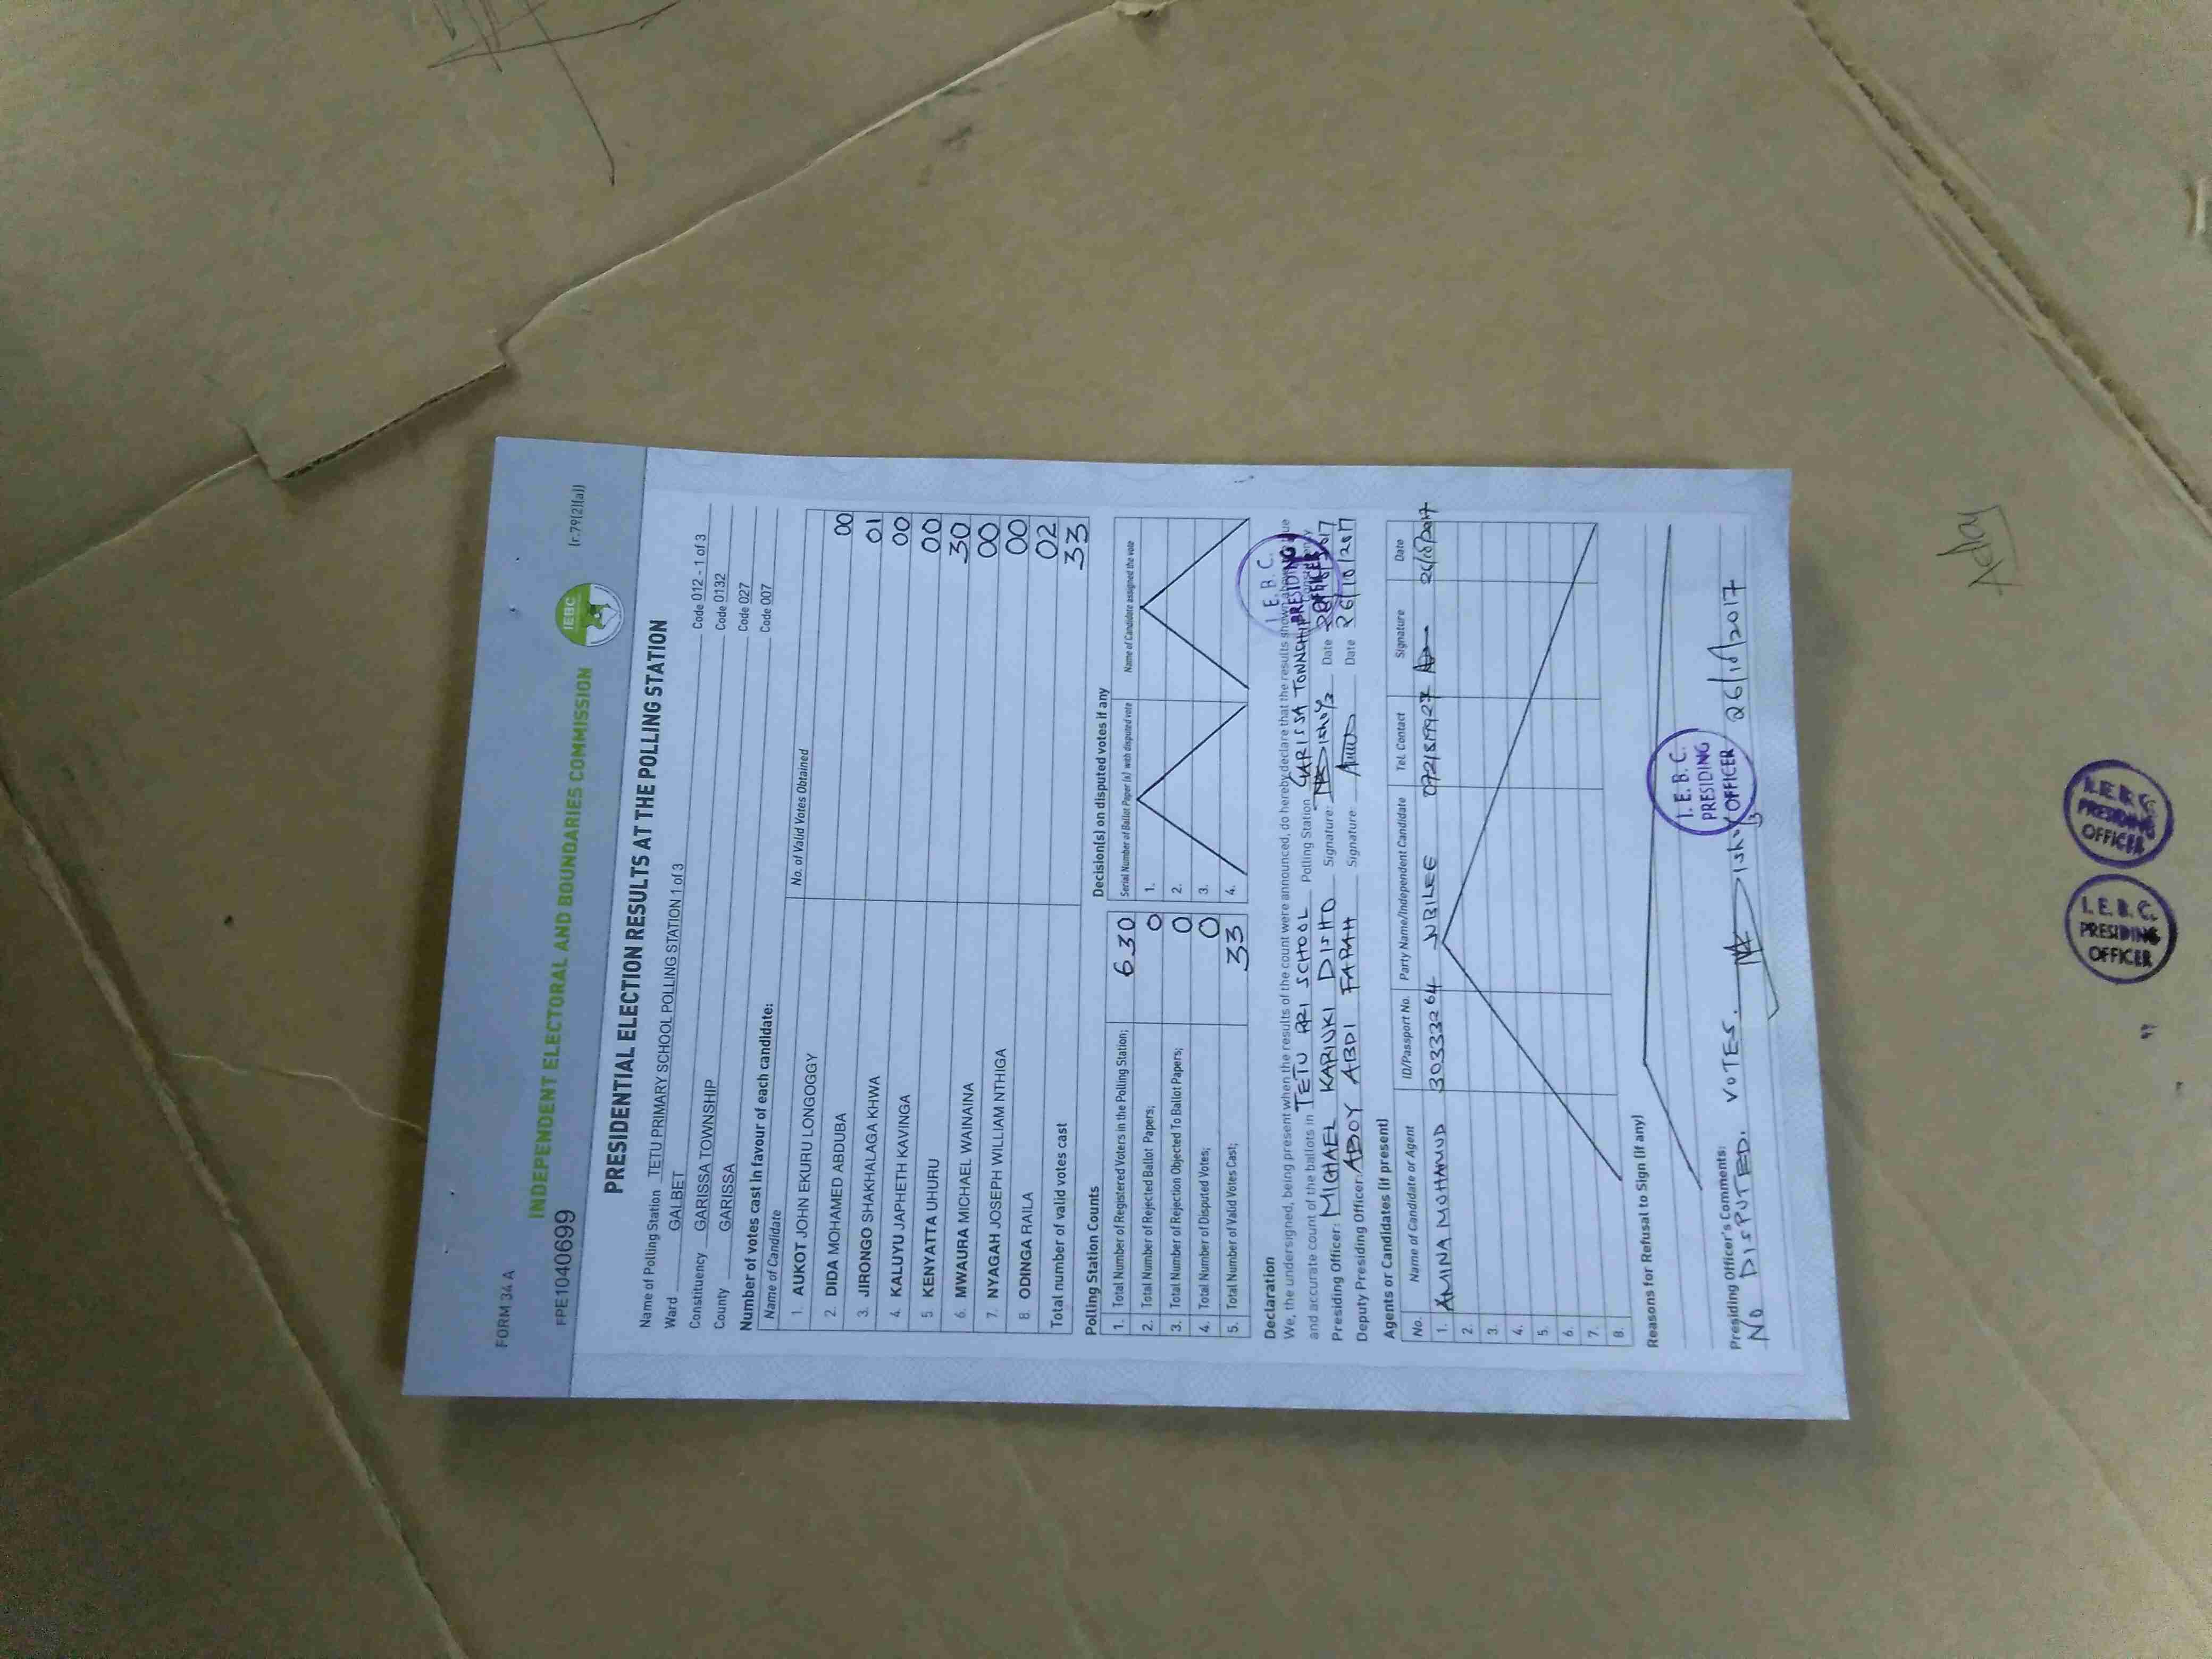 FORM 34 A
(r.79(2)(a))
INDEPENDENT ELECTORAL AND BOUNDARIES COMMISSION
IEBC
FPE1040699
PRESIDENTIAL ELECTION RESULTS AT THE POLLING STATION
Name of Polling Station TETU PRIMARY SCHOOL POLLING STATION 1 of 3 Code 012 - 1 of 3
Ward GALBET Code 0132
Constituency GARISSA TOWNSHIP Code 027
County GARISSA Code 007
Number of votes cast in favour of each candidate:
Name of Candidate No. of Valid Votes Obtained
1. AUKOT JOHN EKURU LONGOGGY 00
2. DIDA MOHAMED ABDUBA 01
3. JIRONGO SHAKHALAGA KHWA 00
4. KALUYU JAPHETH KAVINGA 00
5 KENYATTA UHURU 30
6. MWAURA MICHAEL WAINAINA 00
7. NYAGAH JOSEPH WILLIAM NTHIGA 00
8 ODINGA RAILA 02
Total number of valid votes cast 33
Polling Station Counts
1. Total Number of Registered Voters in the Polling Station; 630
2. Total Number of Rejected Ballot Papers; 0
3. Total Number of Rejection Objected To Ballot Papers; 0
4. Total Number of Disputed Votes; 0
5. Total Number of Valid Votes Cast; 33
Decision(s) on disputed votes if any
Serial Number of Ballot Paper (s) with disputed vote Name of Candidate assigned the vote
1.
2.
3.
4.
Declaration
We, the undersigned, being present when the results of the count were announced, do hereby declare that the results shown
and accurate count of the ballots in TETU PRI SCHOOL Polling Station GARISSA TOWNSHIP
Presiding Officer: MICHAEL KARIUKI DISHO Signature: Date
Deputy Presiding Officer: ABDY ABDI FARAH Signature: Date 26/10/2017
I.E.B.C. PRESIDING OFFICER
Agents or Candidates (if present)
No. Name of Candidate or Agent ID/Passport No. Party Name/Independent Candidate Tel. Contact Signature Date
1. AMINA MOHAMUD 30333264 JUBILEE 26/10/2017
2.
3.
4.
5.
6.
7.
8.
Reasons for Refusal to Sign (if any)
Presiding Officer's Comments:
NO DISPUTED VOTES. 26/10/2017
I.E.B.C.
PRESIDING
OFFICER
I.E.B.C.
PRESIDING
OFFICER
I.E.B.C.
PRESIDING
OFFICER